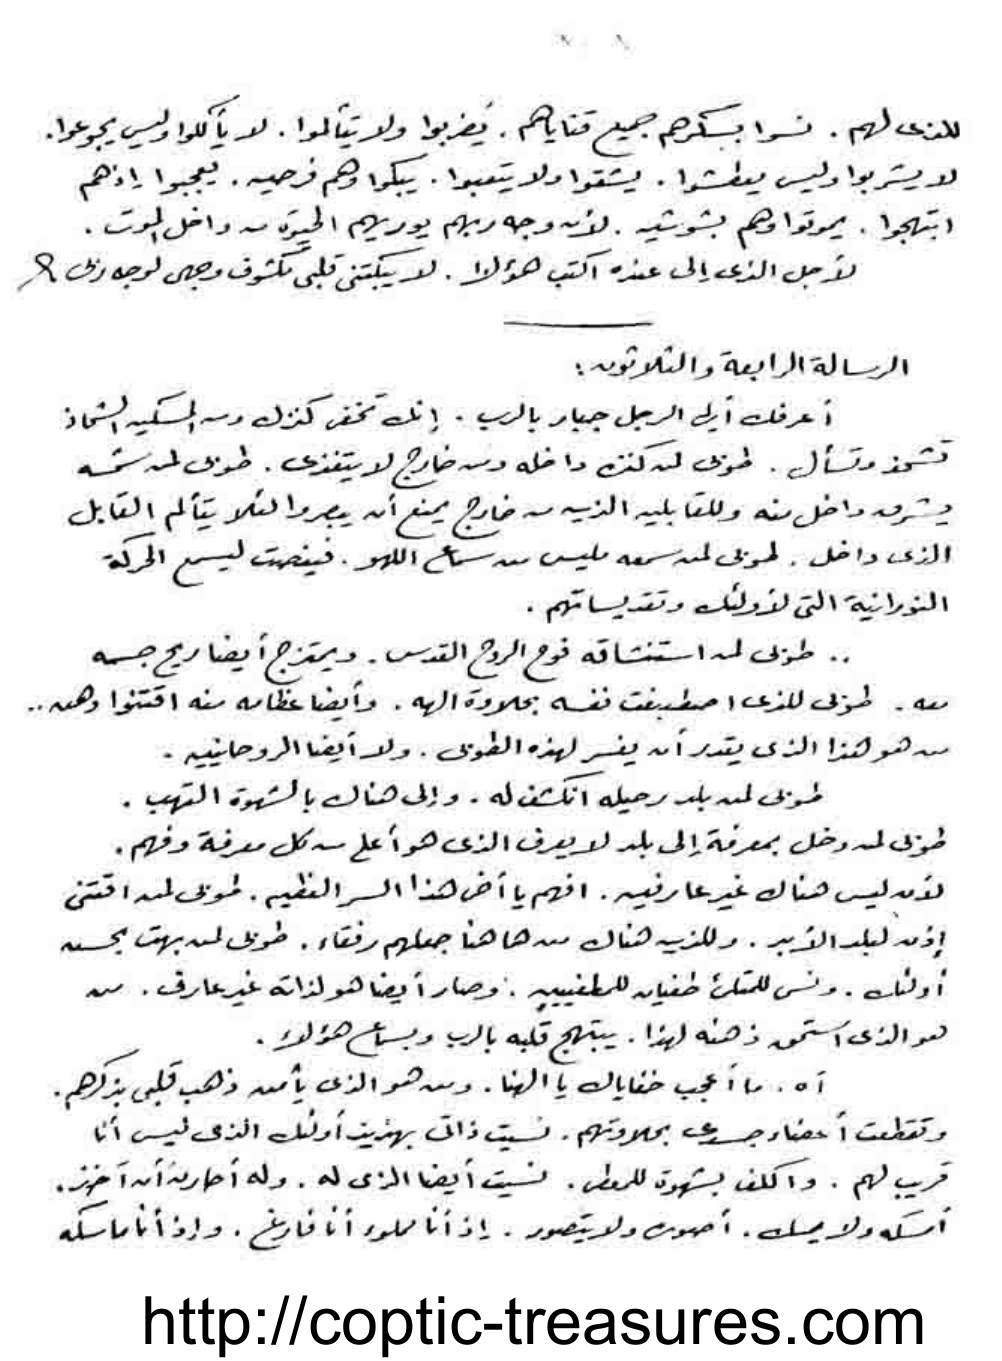 للذى لهم . نسوا بسكرهم جميع قناياهم . يُضربوا ولا يتألموا . لا يأكلوا وليس يجوعوا .
لا يشربوا وليس يعطشوا . يشقوا ولا يتعبوا . يبكوا وهم فرحين . يعجبوا إذهم
ابتهجوا . يموتوا وهم بشوشين . لأن وجه ربهم يوريهم الحيوة من داخل الموت .
لأجل الذى إلى عنده اكتب هؤلا . لا يبكتنى قلبى مكشوف وجهى لوجه ربى
الرسالة الرابعة والثلاثون :
أعرفك أيها الرجل جبار بالرب . إنك تخفى كنزك ومن المسكين الشحاذ
تشحذ وتسأل . طوبى لمن كنزه داخله ومن خارج لا يتغذى . طوبى لمن شمسه
يشرق داخل منه وللقابلين الذين من خارج يمنع أن يبصروا لئلا يتألم القابل
الذى داخل . طوبى لمن سمعه مليس من سماع اللهو . فينصت ليسمع الحركة
النورانية التى لأولئك وتقديساتهم .
.. طوبى لمن استنشاقه فوح الروح القدس . ويمتزج أيضا ريح جسمه
معه . طوبى للذى اصطبغت نفسه بحلاوة الهه . وأيضا عظامه منه اقتنوا دهن ..
من هو هذا الذى يقدر أن يفسر لهذه الطوبى . ولا أيضا الروحانيين .
طوبى لمن بلد رحيله انكشف له . وإلى هناك بالشهوة التهب .
طوبى لمن دخل بمعرفة إلى بلد لا يعرف الذى هو أعلى من كل معرفة وفهم .
لأن ليس هناك غير عارفين . افهم يا أخى هذا السر العظيم . طوبى لمن اقتنى
إذن لبلد الأبد . وللذين هناك من هاهنا جعلهم رفقاء . طوبى لمن بهت بحسن
أولئك . ونسى للمتكئ طغيان للمطغيين . وصار أيضا هو لذاته غير عارف . من
هو الذى استحق ذهنه لهذا . يبتهج قلبه بالرب وبسماع هؤلاء .
آه . ما أعجب خفاياك يا الهنا . ومن هو الذى يأمن ذهب قلبى بذكرهم .
وتقطعت أعضاء جسدى بحلاوتهم . نسيت ذاتى بهذيذ أولئك الذى ليس أنا
قريب لهم . واكلف بشهوة للمعطى . نسيت أيضا الذى له . وله أحارب أن آخذ .
أمسكه ولا يمسك . أصوره ولا يتصور . إذ أنا مملوء أنا فارغ . وإذ أنا ماسكه
http://coptic-treasures.com